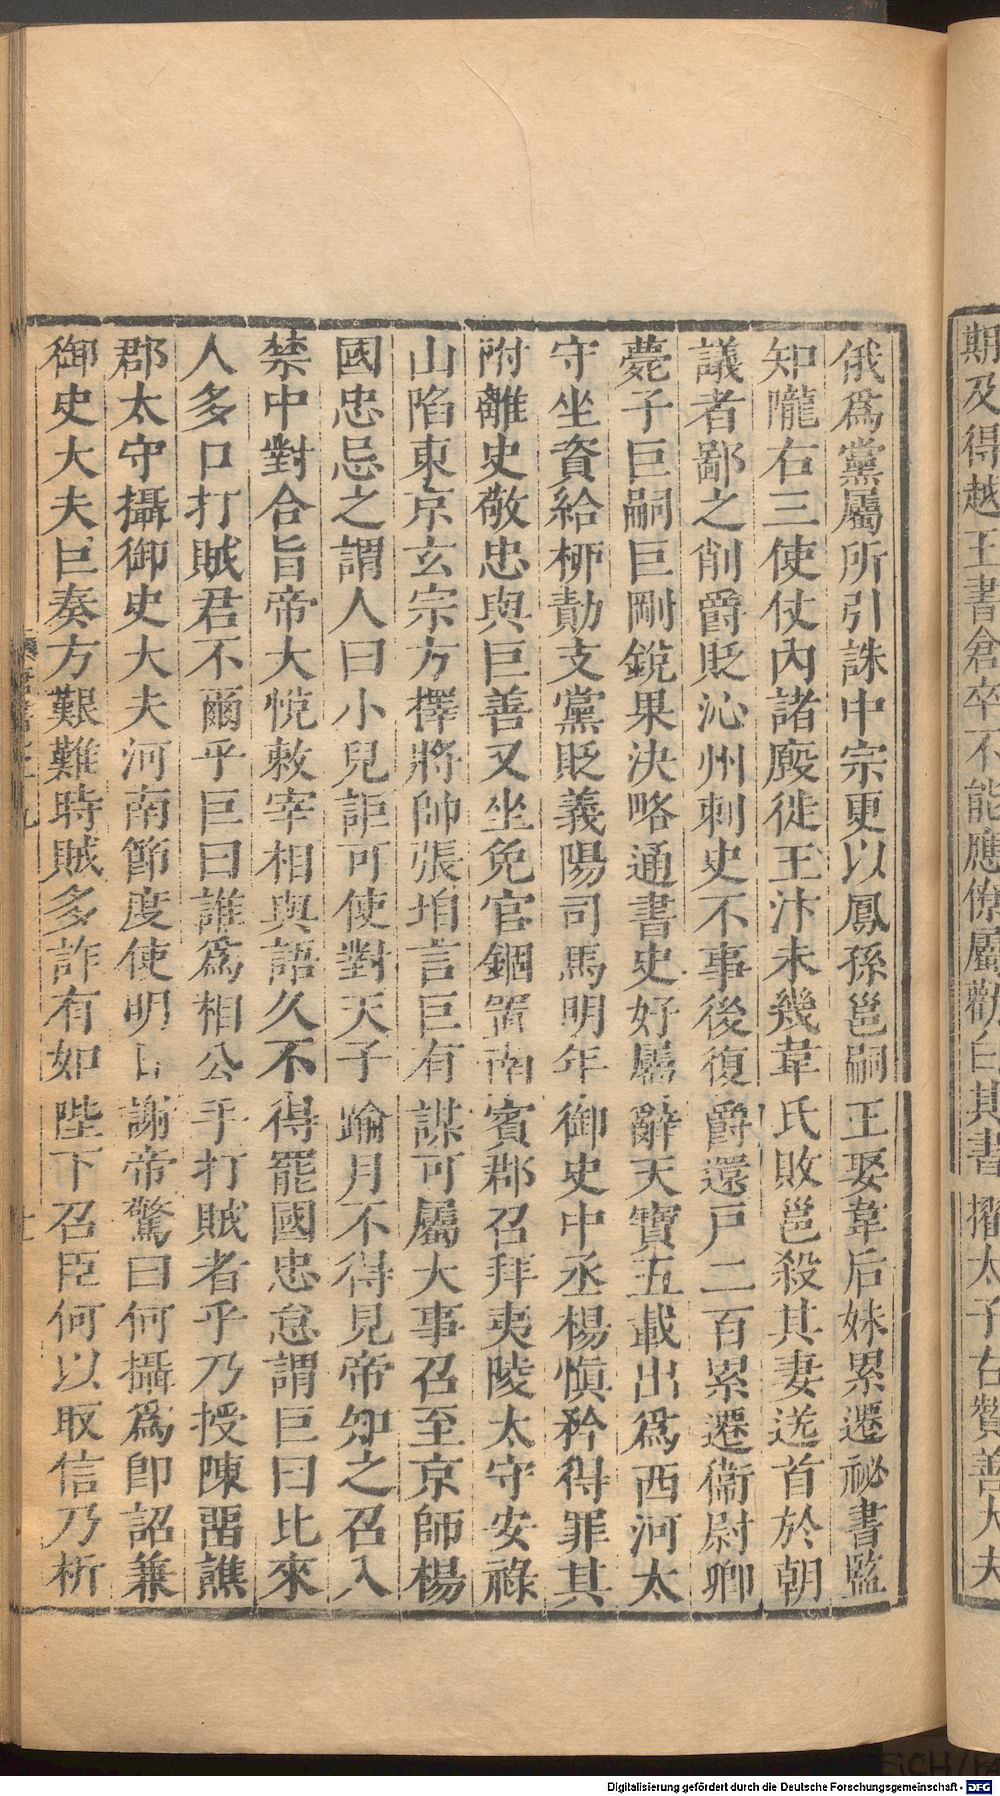 期及得越王書倉卒不能應僚屬勸白其書擢太子右贊善大夫
俄爲黨屬所引誅中宗更以鳳孫邕嗣王娶韋后妹累遷祕書監
知隴右三使仗內諸廄徙王汴未幾韋氏敗邕殺其妻送首於朝
議者鄙之削爵貶沁州刺史不事後復爵還戸二百累遷衞尉卿
薨子巨嗣巨剛銳果決略通書史好屬辭天寶五載出爲西河太
守坐資給栁勣支黨貶義陽司馬明年御史中丞楊愼矜得罪其
附離史敬忠與巨善又坐免官錮置南賓郡召拜夷陵太守安祿
山陷東京玄宗方擇將帥張垍言巨有謀可屬大事召至京師楊
國忠忌之謂人曰小兒詎可使對天子踰月不得見帝知之召入
禁中對合旨帝大悅敕宰相與語久不得罷國忠怠謂巨曰比來
人多口打賊君不爾乎巨曰誰爲相公手打賊者乎乃授陳畱譙
郡太守攝御史大夫河南節度使明日謝帝驚曰何攝爲卽詔兼
御史大夫巨奏方艱難時賊多詐有如陛下召臣何以取信乃析
Digitalisierung gefördert durch die Deutsche Forschungsgemeinschaft - DFG